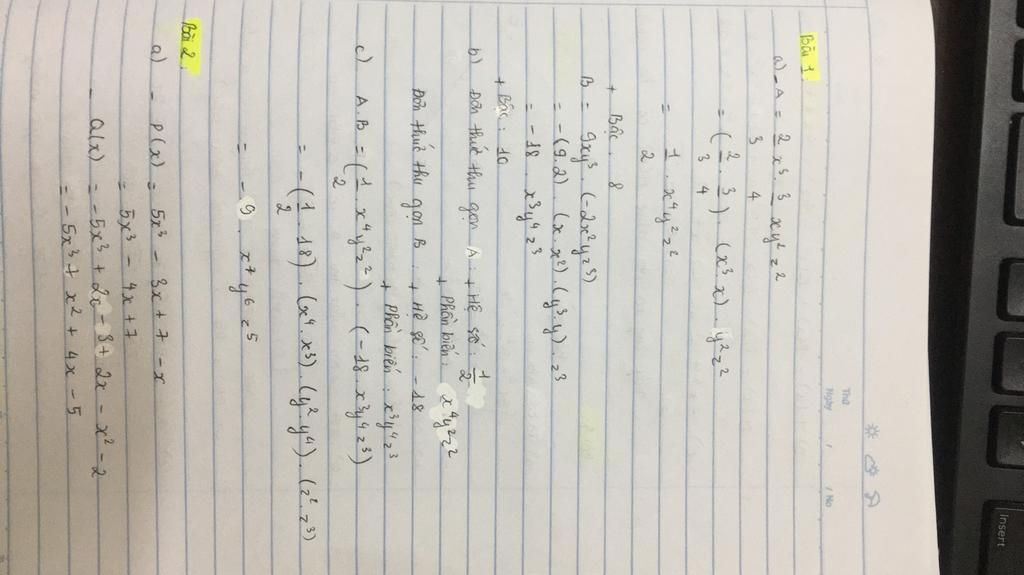 Thứ
Ngày / / No
Bài 1
a) - A = 2/3 x³ . 3/4 xy²z²
= (2/3 . 3/4) . (x³.x) . y²z²
= 1/2 . x⁴y²z²
+ Bậc : 8
B = 9xy³ . (-2x²yz³)
= -(9.2) . (x.x²) . (y³.y) . z³
= -18 . x³y⁴z³
+ Bậc : 10
b) Đơn thức thu gọn A : + Hệ số : 1/2
+ Phần biến : x⁴y²z²
Đơn thức thu gọn B : + Hệ số : -18
+ Phần biến : x³y⁴z³
c) A.B = (1/2 . x⁴y²z²) . (-18 . x³y⁴z³)
= -(1/2 . 18) . (x⁴.x³) . (y².y⁴) . (z².z³)
= -9 . x⁷y⁶z⁵
Bài 2.
a) - P(x) = 5x³ - 3x + 7 - x
= 5x³ - 4x + 7
- Q(x) = -5x³ + 2x - 3 + 2x - x² - 2
= -5x³ + x² + 4x - 5
Insert